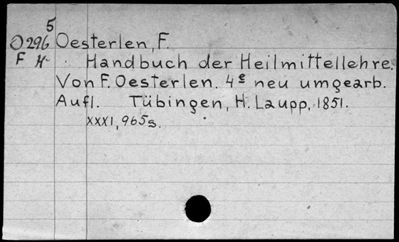 5
O296 Oesterlen, F.
F H Handbuch der Heilmittellehre.
Von F. Oesterlen. 4e neu umgearb.
Aufl. Tübingen, H. Laupp, 1851.
XXXI, 965s.